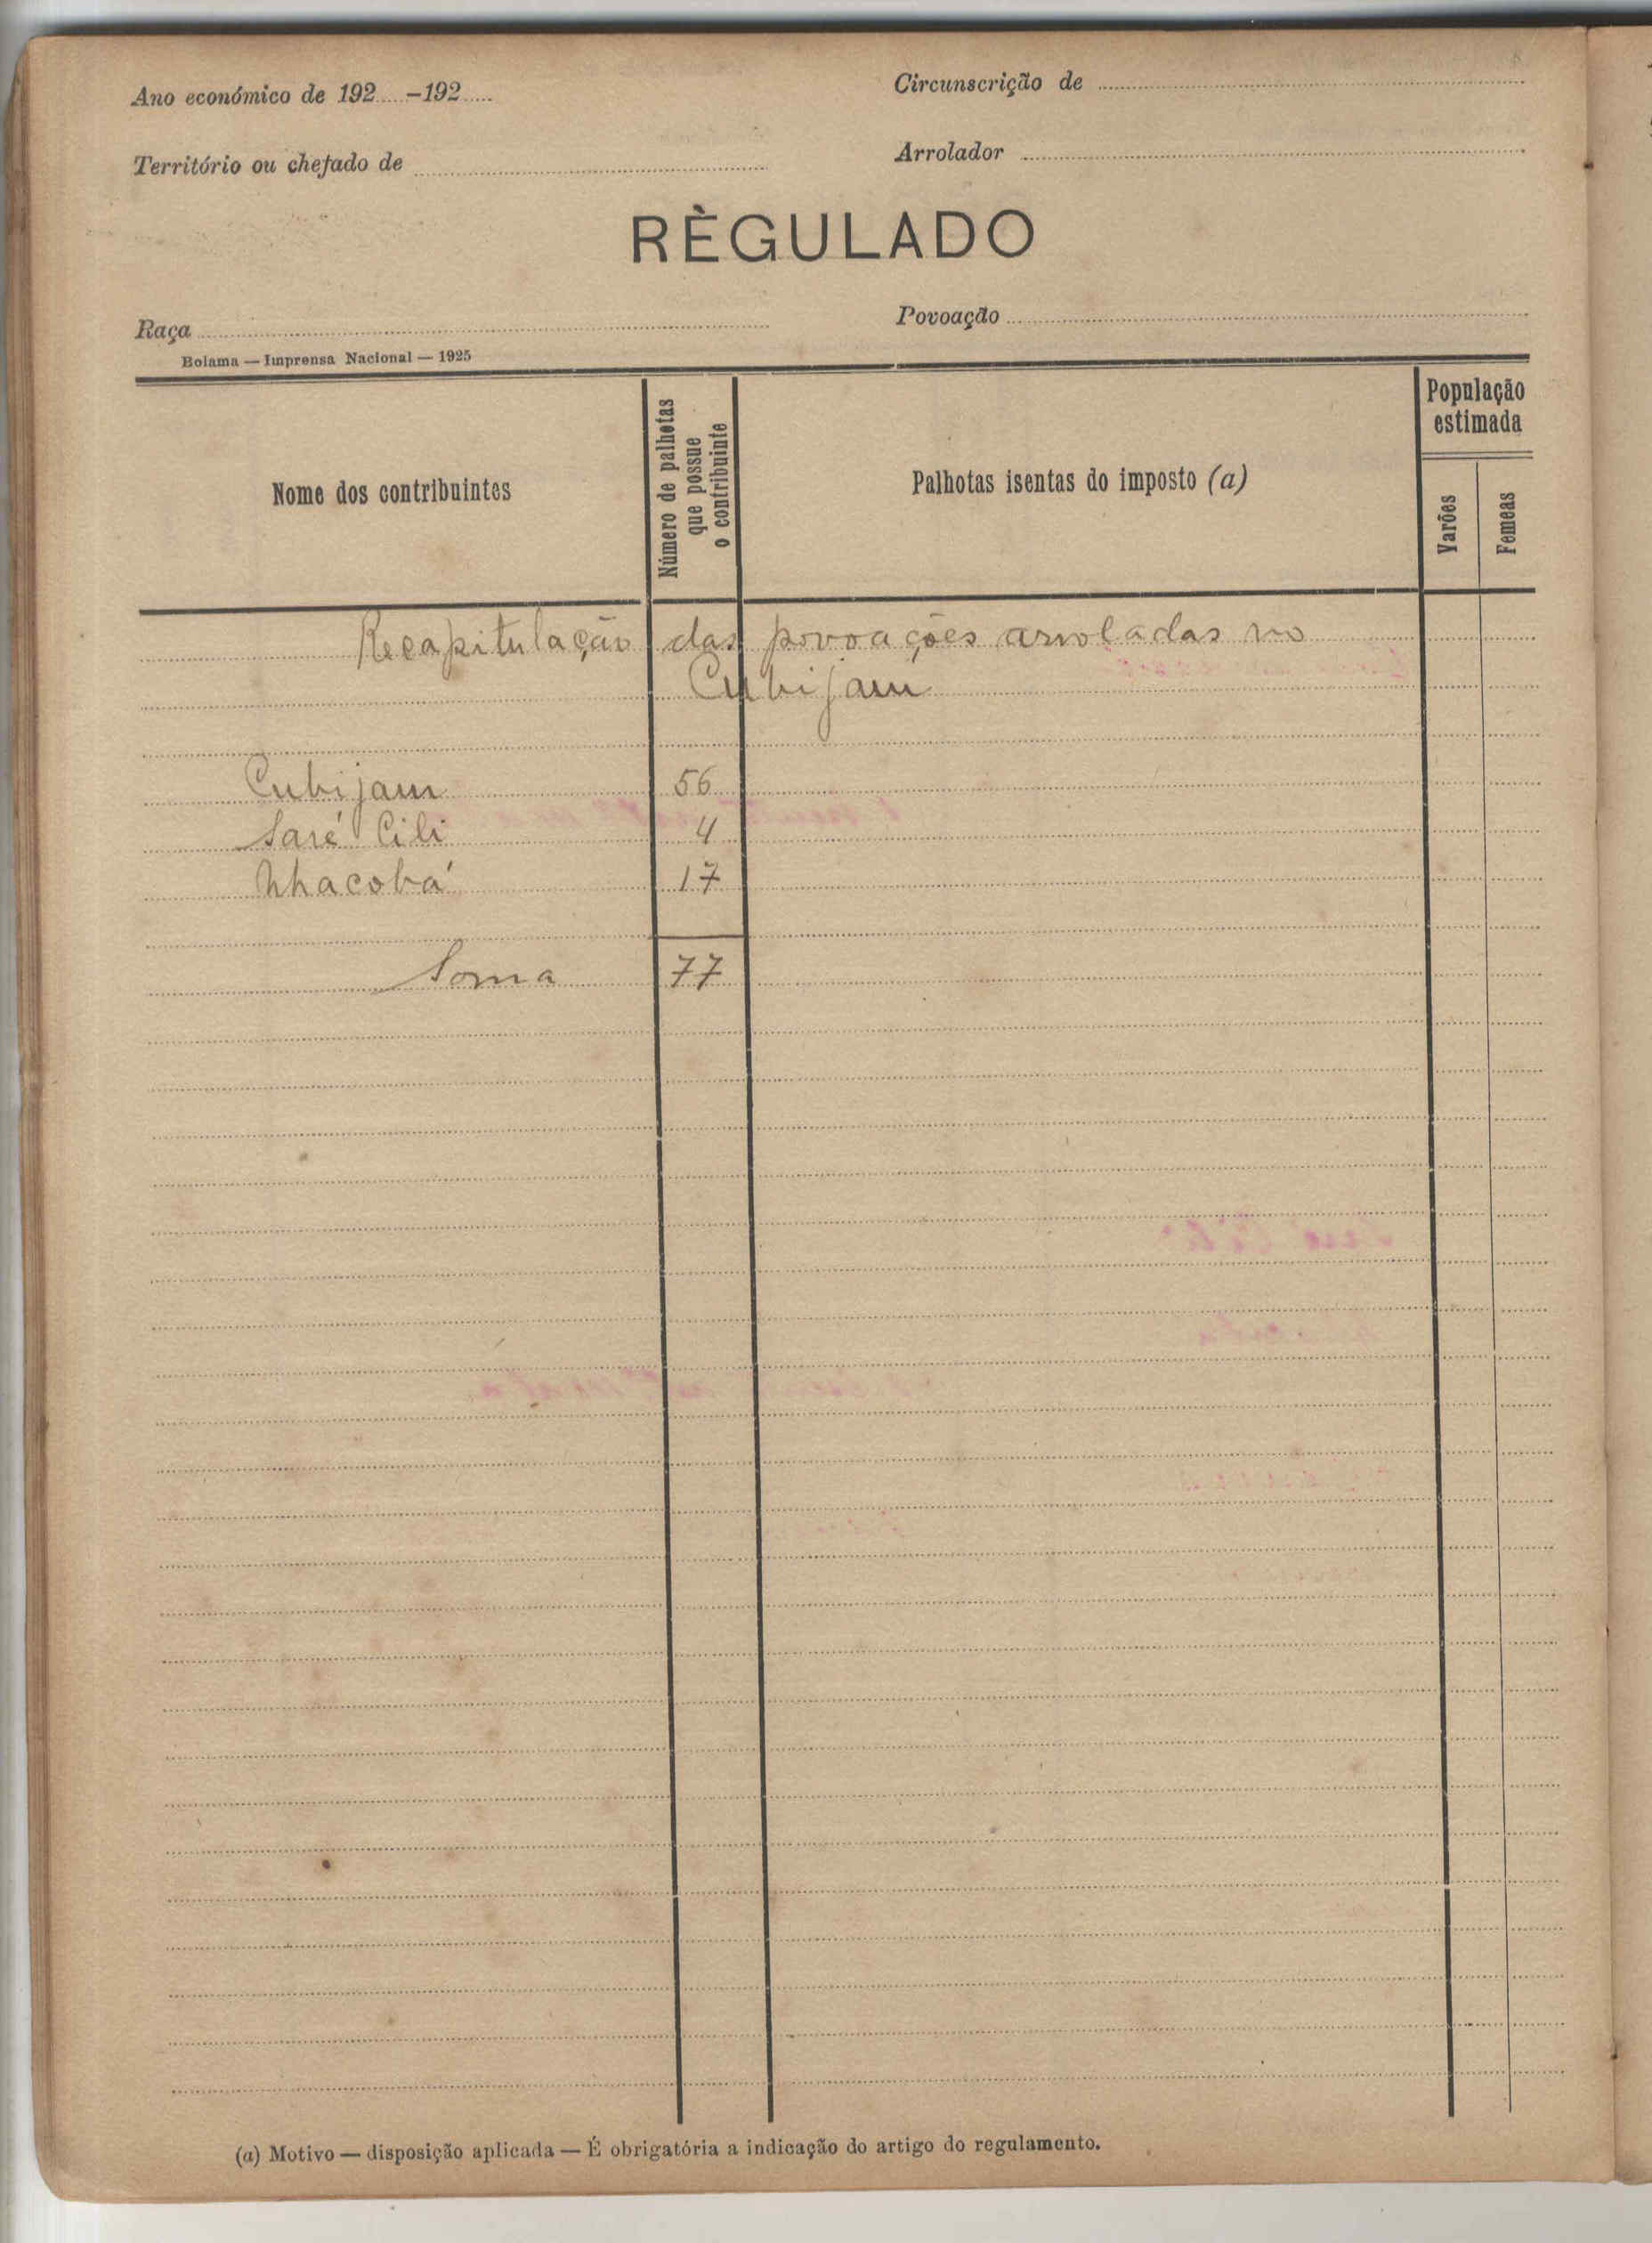 Ano económico de 192.....-192.....
Circunscrição de
Território ou chefado de
Arrolador
RÈGULADO
Raça
Povoação
Bolama — Imprensa Nacional — 1925
Nome dos contribuintes
Número de palhotas
que possue
o contribuinte
Palhotas isentas do imposto (a)
População
estimada
Varões
Femeas
Recapitulação das povoações arroladas no
Cubijam
Cubijam 56
Saré Cili 4
Nhacobá 17
Soma 77
(a) Motivo — disposição aplicada — É obrigatória a indicação do artigo do regulamento.